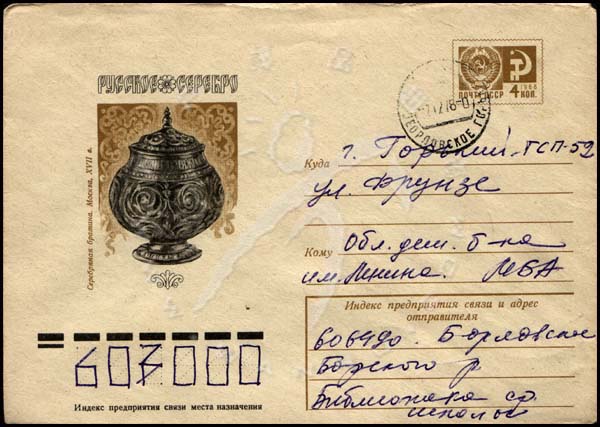 РУССКОЕ СЕРЕБРО
Серебряная братина. Москва, XVII в.
ПОЧТА СССР 4 КОП.
1968
Куда г. Горький-ГСП-52
ул. Фрунзе
Кому Обл. дет. б-ка
им. Ленина. МБА
Индекс предприятия связи и адрес
отправителя
606490. Б-орловское
Борского р
Библиотека ср.
школы
603000
Индекс предприятия связи места назначения